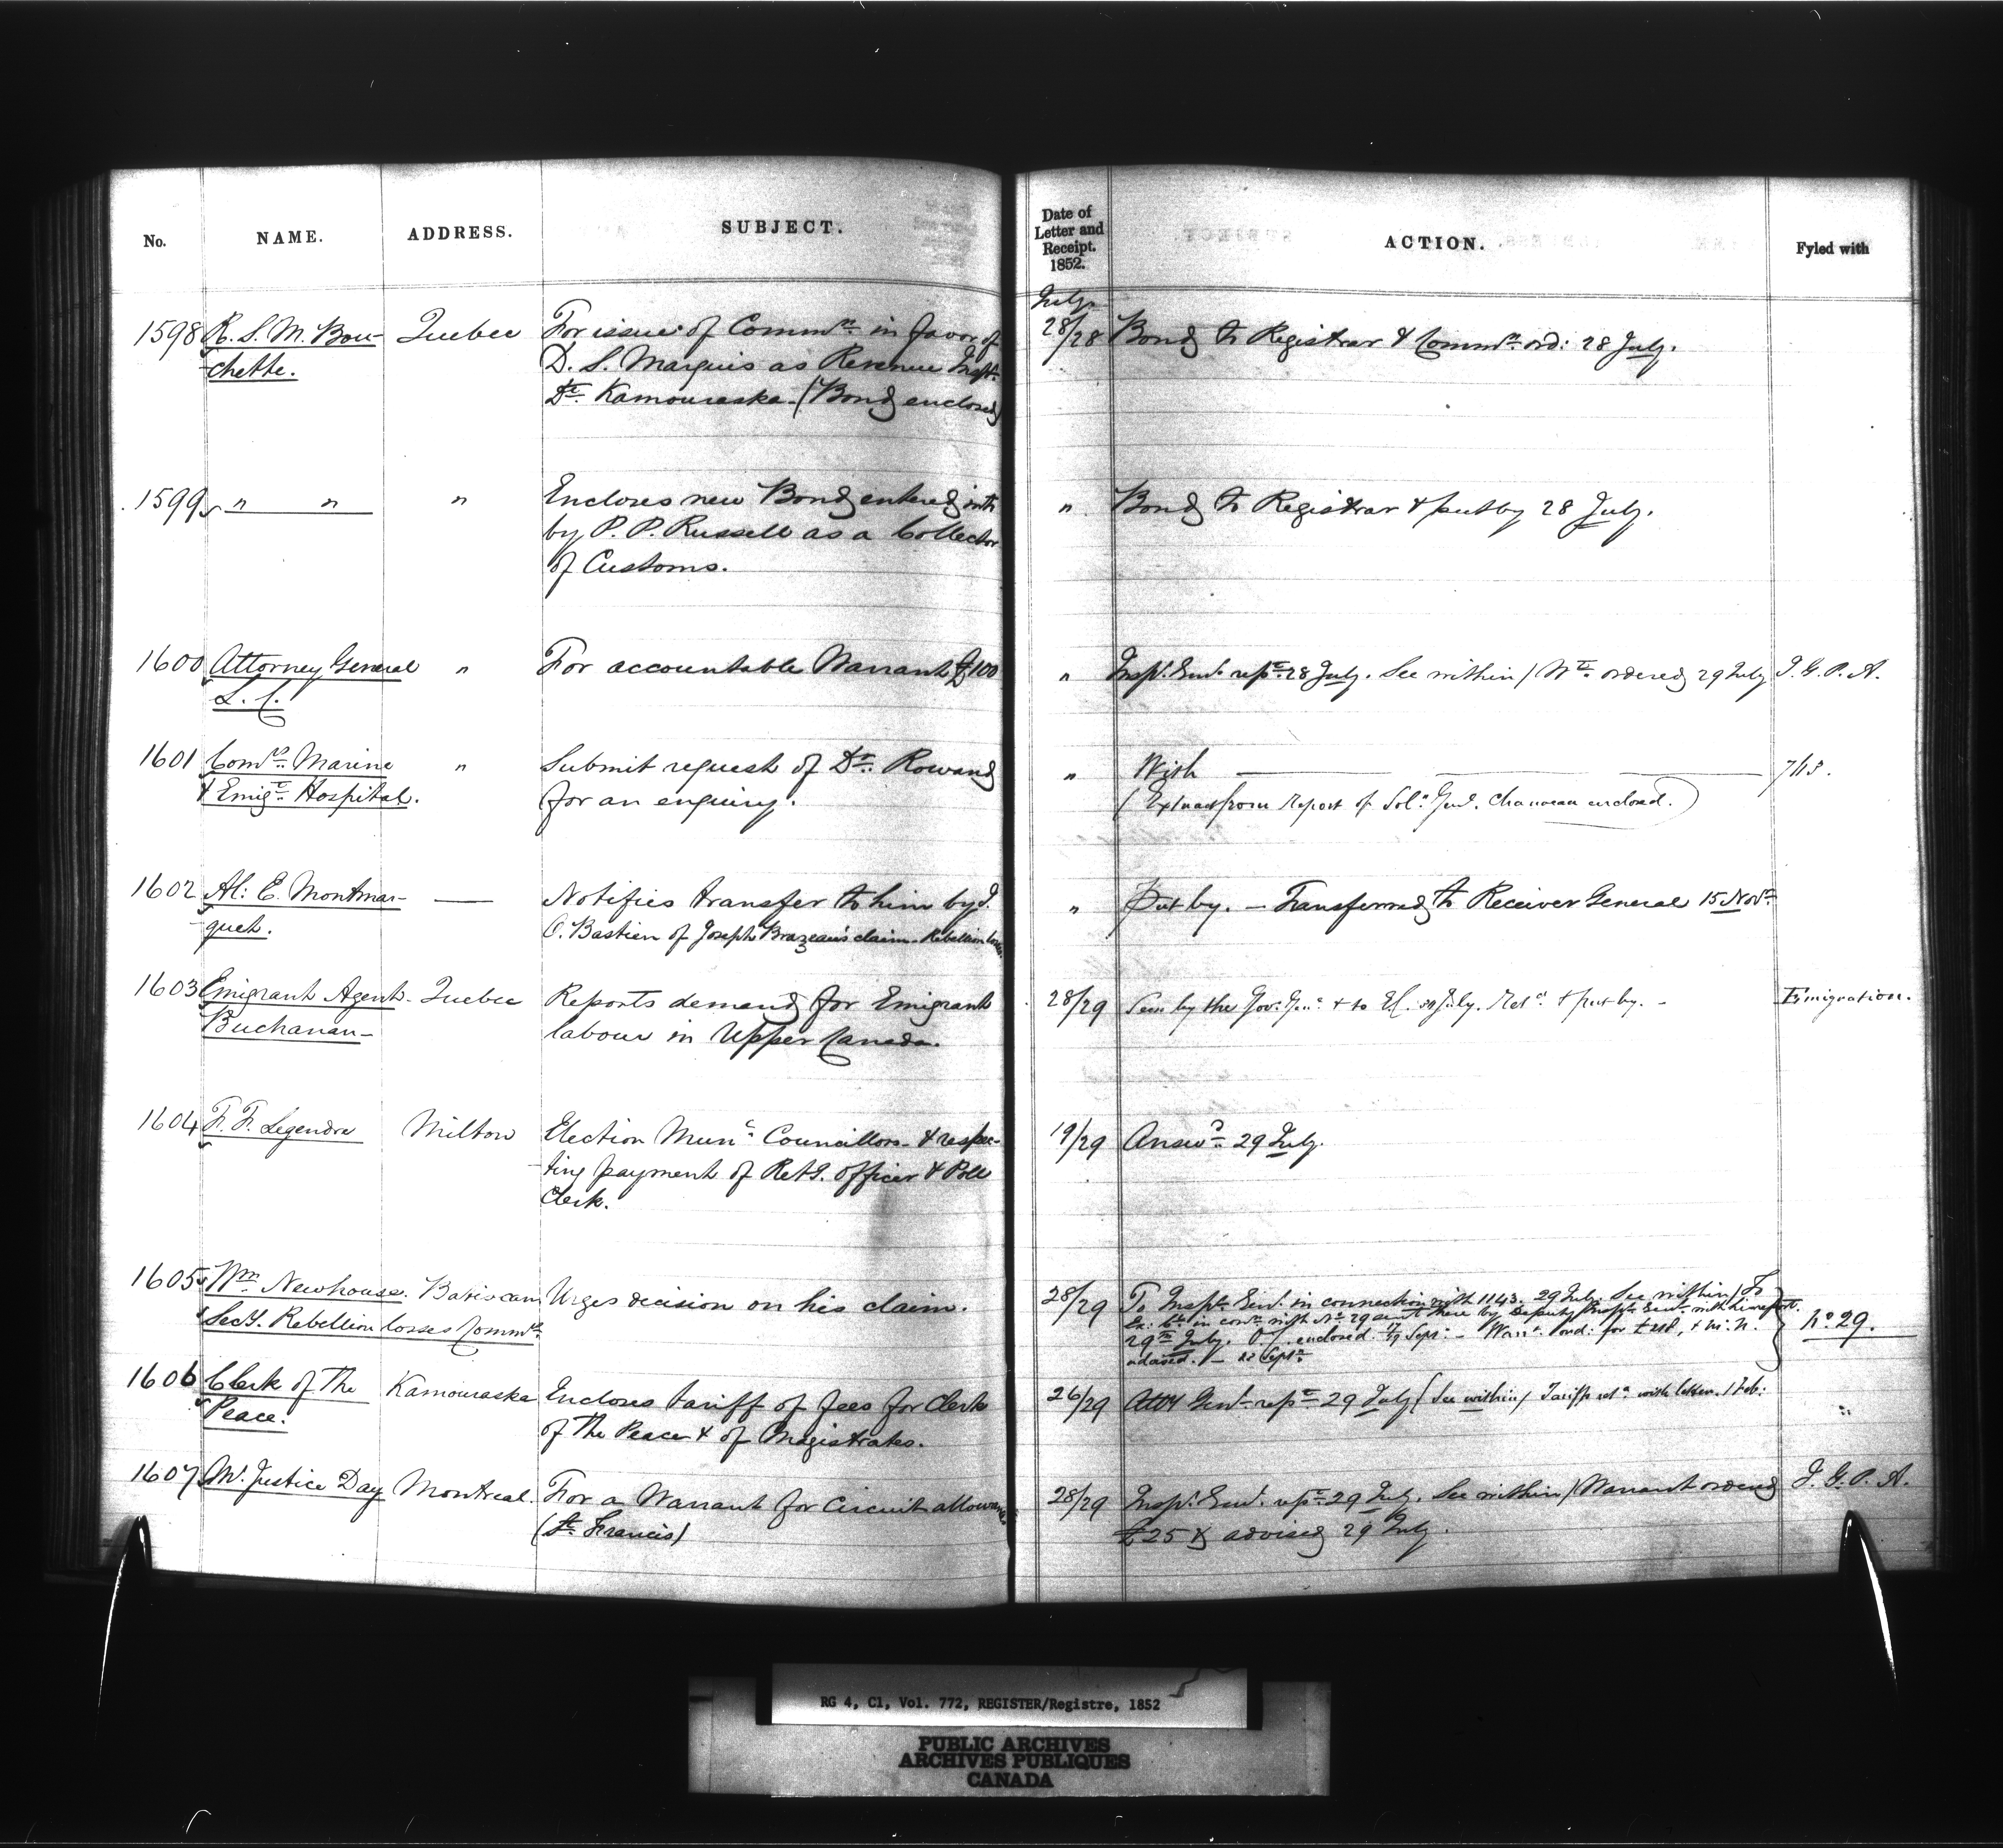 No. NAME. ADDRESS. SUBJECT.
Date of Letter and Receipt. 1852. ACTION. Fyled with
1598 R. S. M. Bou- Quebec For issue of Commn. in favor of
chette. D. S. Marquis as Revenue Inspr.
Dt. Kamouraska - (Bond enclosed)
July
28/28 Bond to Registrar & Commn. ord: 28 July.
1599 " " " Encloses new Bond entered into
by P. P. Russell as a Collector
of Customs.
" Bond to Registrar & put by 28 July.
1600 Attorney General " For accountable Warrant £100
L. C.
" Insp. Genl. rept. 28 July. See within / Wt. ordered 29 July I. G. P. A.
1601 Comrs. Marine " Submit request of Dr. Rowand
& Emigt. Hospital. for an enquiry.
" With 745.
(Extract from Report of Solr. Genl. Chauveau enclosed.)
1602 Al: E. Montmar- — Notifies transfer to him by J.
quet. O. Bastien of Joseph Brazeau's claim - Rebellion losses.
" Put by. - Transferred to Receiver General 15 Novr.
1603 Emigrant Agent - Quebec Reports demand for Emigrant
Buchanan - labour in Upper Canada.
28/29 Seen by the Gov. Genl. & to E.C. 29 July. Retd. & put by. - Emigration.
1604 F. F. Legendre Milton Election Munl. Councillors - & respec-
ting payment of Retg. officer & Poll
Clerk.
19/29 Answd. 29 July.
1605 Wm. Newhouse. Batiscan Urges decision on his claim.
Secy. Rebellion losses Commn.
28/29 To Inspr. Genl. in connection with 1143. 29 July. See within / To
Ex: Cl. in conn. with No. 29 sent there by Deputy Inspr. Genl. with his report.
29th July. enclosed 17/19 Sept: - Warrt. ord: for
advised. - 22 Septr. No. 29.
1606 Clerk of The Kamouraska Encloses tariff of fees for Clerk
Peace. of The Peace & of Magistrates.
26/29 Atty Genl. rept. 29 July (See within / Tariff retd. with letter. 1 Feb:
1607 Mr. Justice Day Montreal. For a Warrant for Circuit allowances
(St. Francis)
28/29 Insp. Genl. rept. 29 July. See within / Warrant ordered I. G. P. A.
£25 & advised 29 July.
RG 4, C1, Vol. 772, REGISTER/Registre, 1852
PUBLIC ARCHIVES
ARCHIVES PUBLIQUES
CANADA